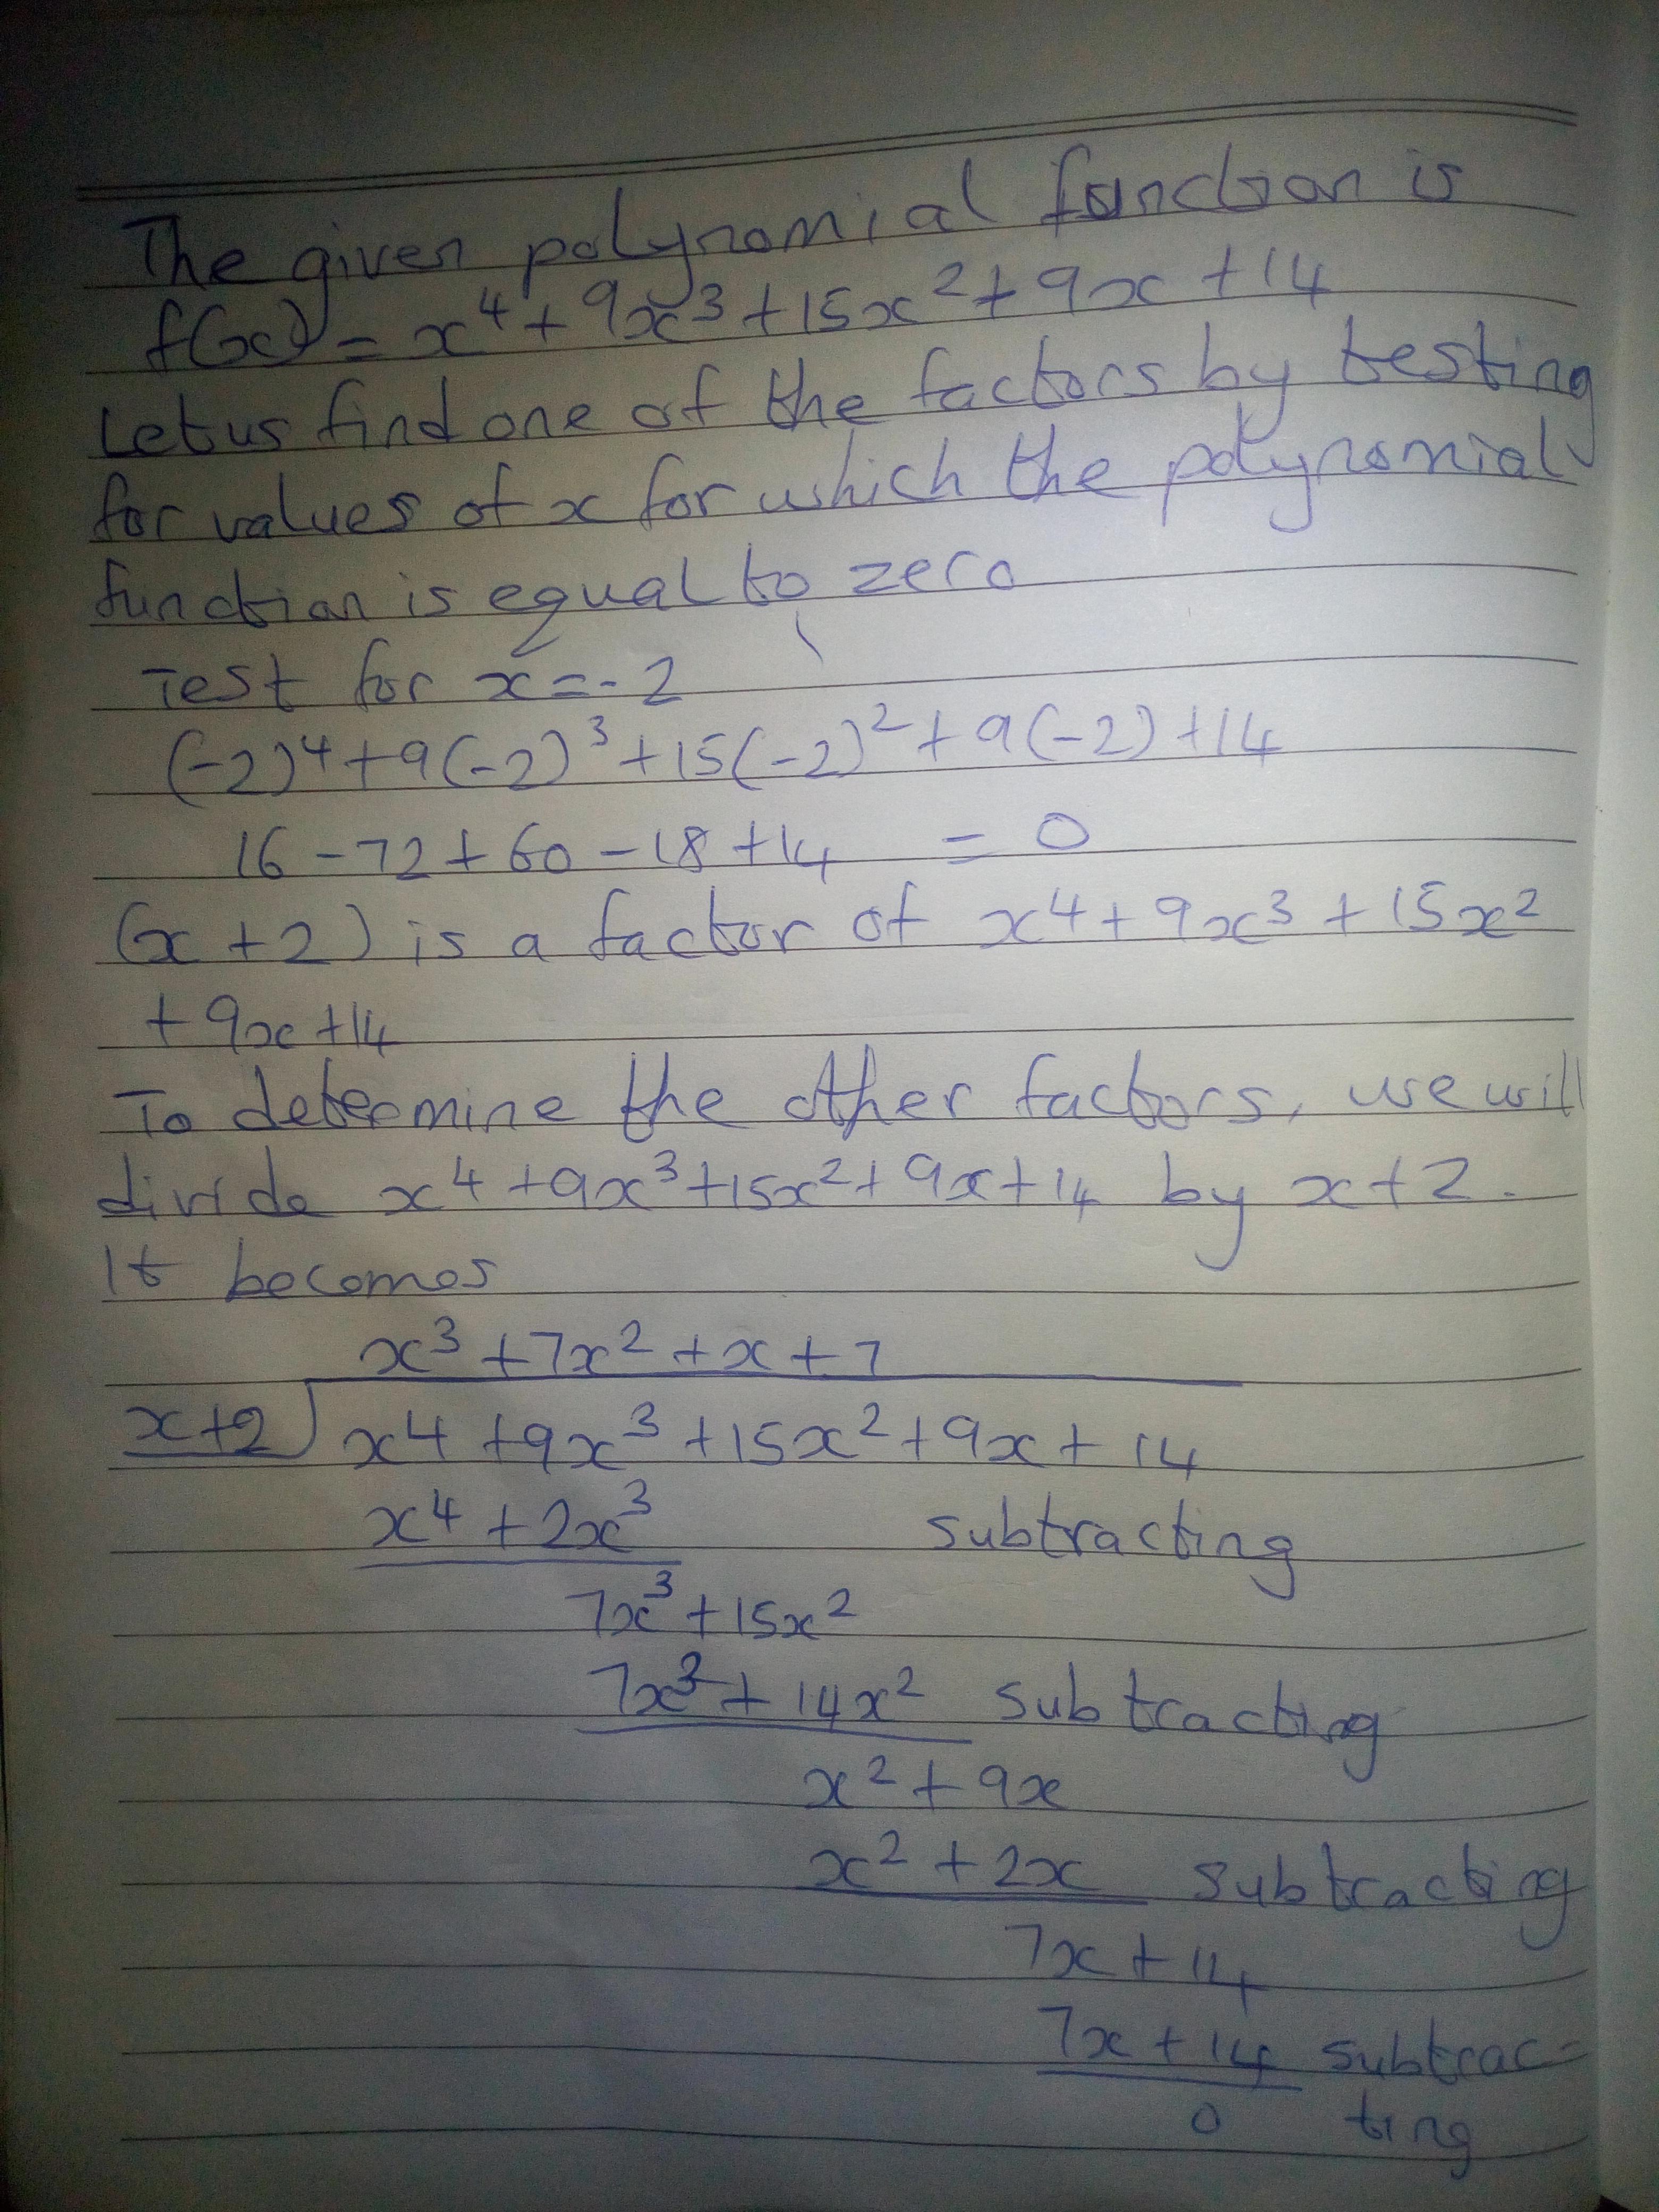 The given polynomial function is
f(x) = x⁴ + 9x³ + 15x² + 9x + 14
Let us find one of the factors by testing
for values of x for which the polynomial
function is equal to zero
Test for x = -2
(-2)⁴ + 9(-2)³ + 15(-2)² + 9(-2) + 14
16 - 72 + 60 - 18 + 14 = 0
(x + 2) is a factor of x⁴ + 9x³ + 15x²
+ 9x + 14
To determine the other factors, we will
divide x⁴ + 9x³ + 15x² + 9x + 14 by x + 2.
It becomes
x³ + 7x² + x + 7
x+2 ) x⁴ + 9x³ + 15x² + 9x + 14
x⁴ + 2x³ subtracting
7x³ + 15x²
7x³ + 14x² subtracting
x² + 9x
x² + 2x subtracting
7x + 14
7x + 14 subtrac-
0 ting